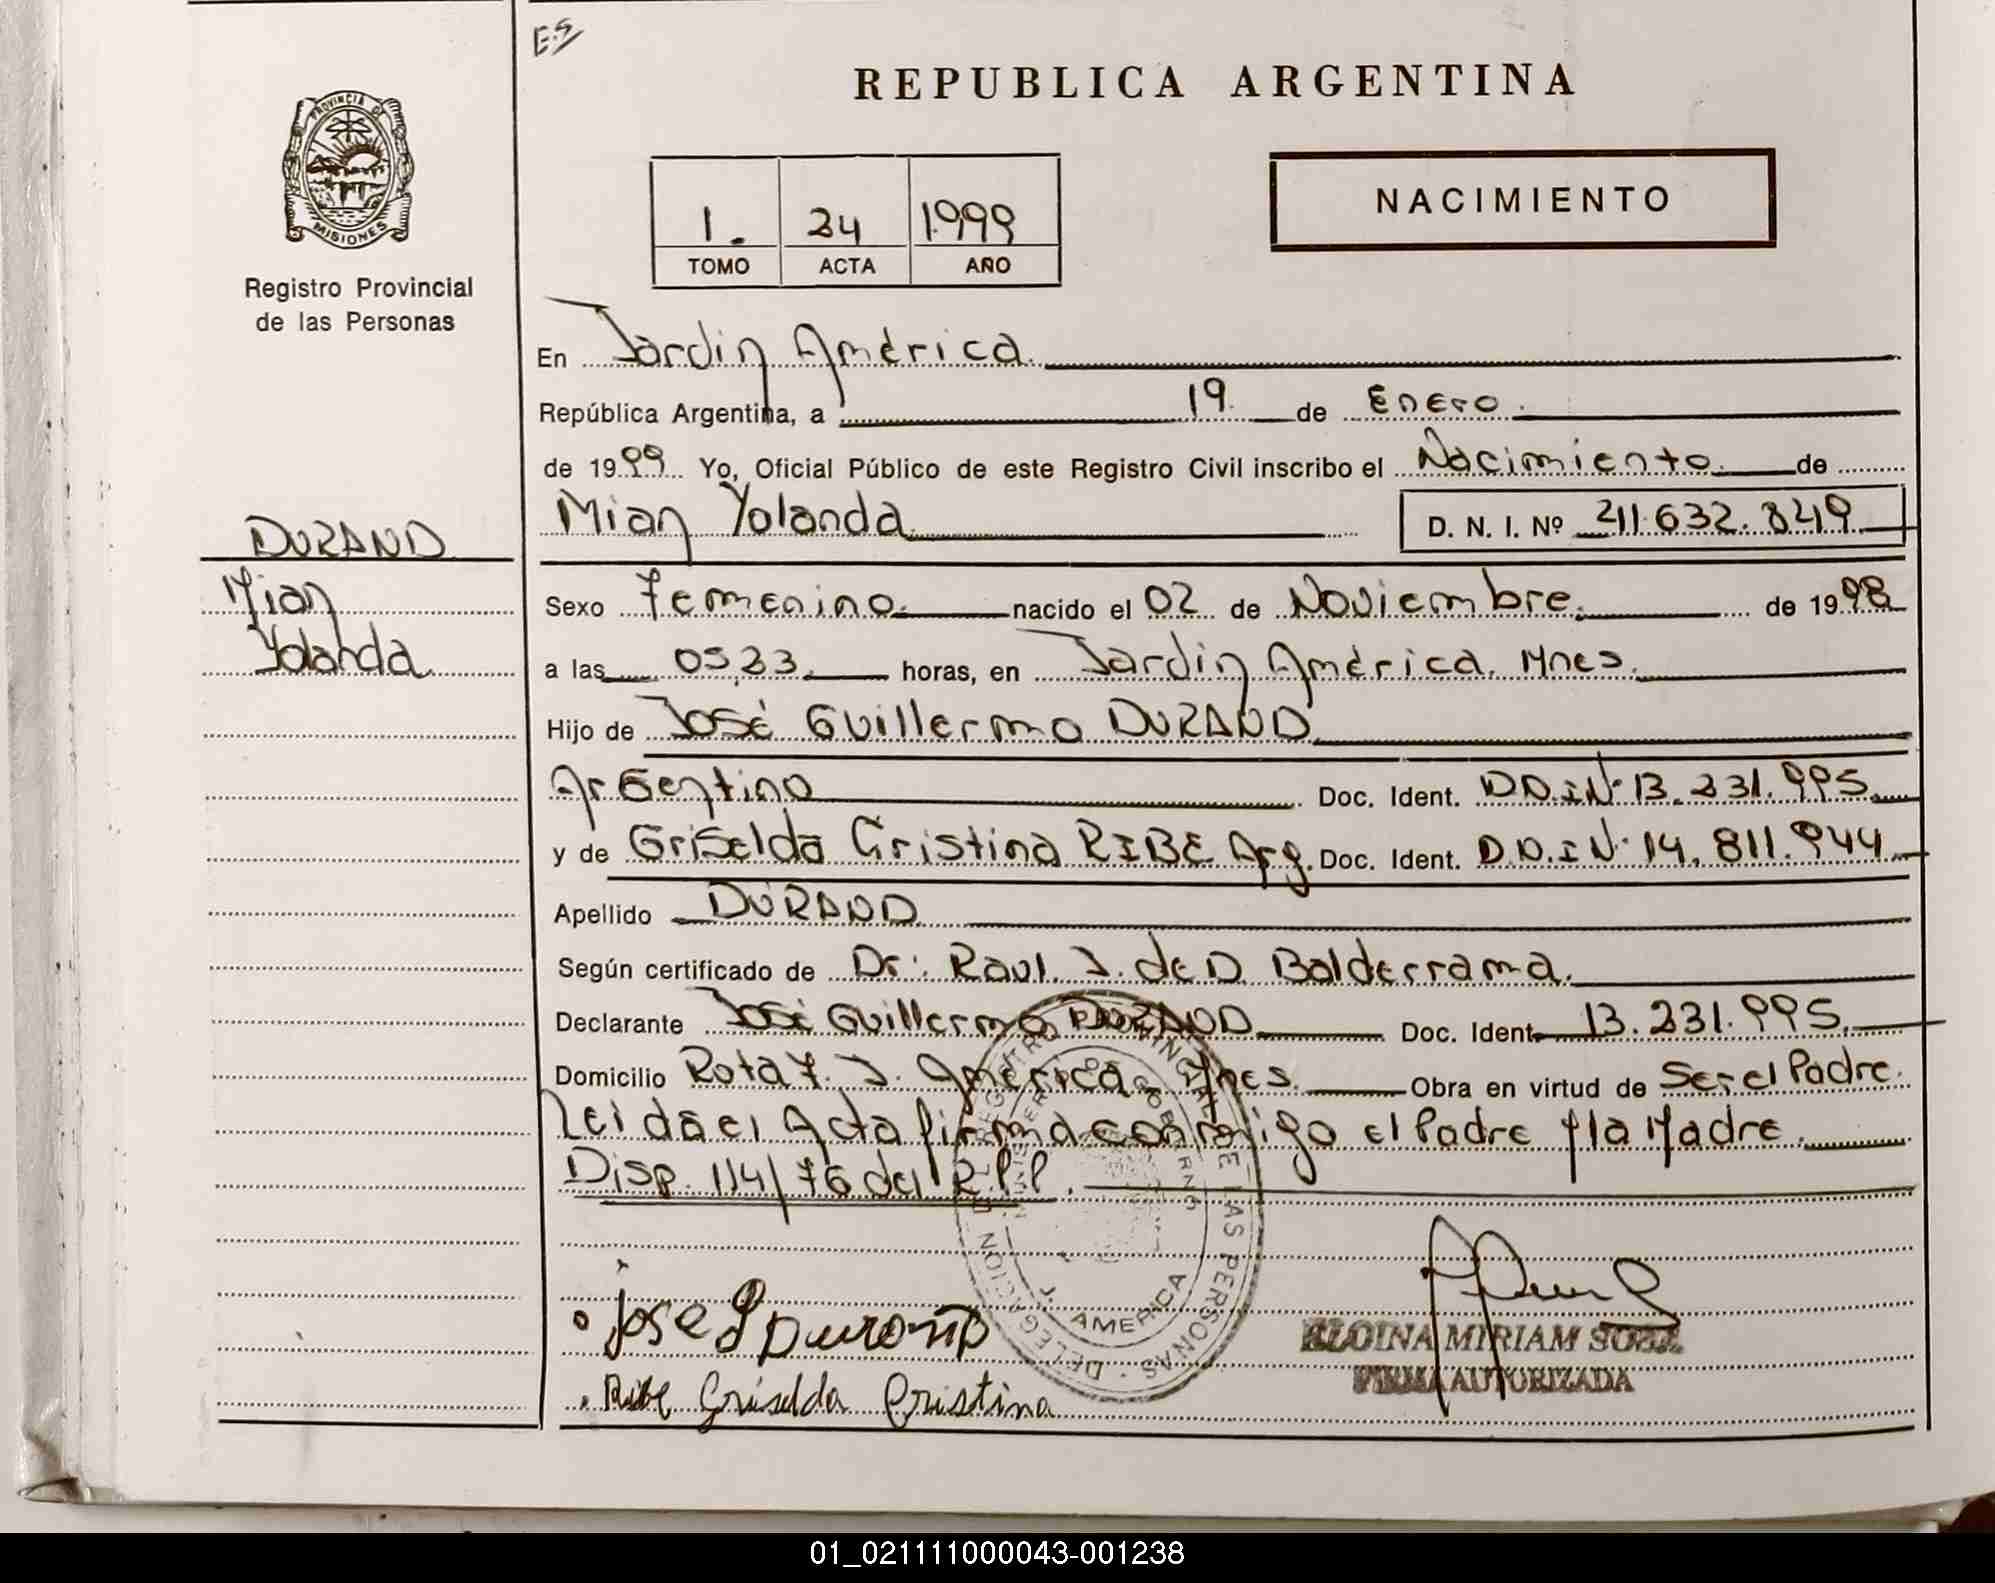 ES
REPUBLICA ARGENTINA
PROVINCIA DE
MISIONES
Registro Provincial
de las Personas
1. 24 1999
TOMO ACTA AÑO
NACIMIENTO
En Jardin América
República Argentina, a 19 de Enero
de 1999 Yo, Oficial Público de este Registro Civil inscribo el Nacimiento de
Mian Yolanda D. N. I. Nº 41.632.849
DURAND
Mian
Yolanda
Sexo Femenino nacido el 02 de Noviembre de 1998
a las 05,23 horas, en Jardin América. Mnes.
Hijo de José Guillermo DURAND
Argentino Doc. Ident. D.N.I Nº 13.231.995
y de Griselda Cristina RIBE Arg. Doc. Ident. D.N.I Nº 14.811.944
Apellido DURAND
Según certificado de Dr. Raul J. de D Balderrama.
Declarante José Guillermo DURAND Doc. Ident 13.231.995
Domicilio Rota 7. J. América - Mnes. Obra en virtud de Ser el Padre.
Leida el Acta firma conmigo el Padre y la Madre.
Disp. 114/76 del R.P.P.
REGISTRO PROVINCIAL DE LAS PERSONAS · DELEGACION
MINISTERIO DE GOBIERNO
J. AMERICA
Jose G Durand
Ribe Griselda Cristina
MIRIAM
FIRMA AUTORIZADA
01_021111000043-001238